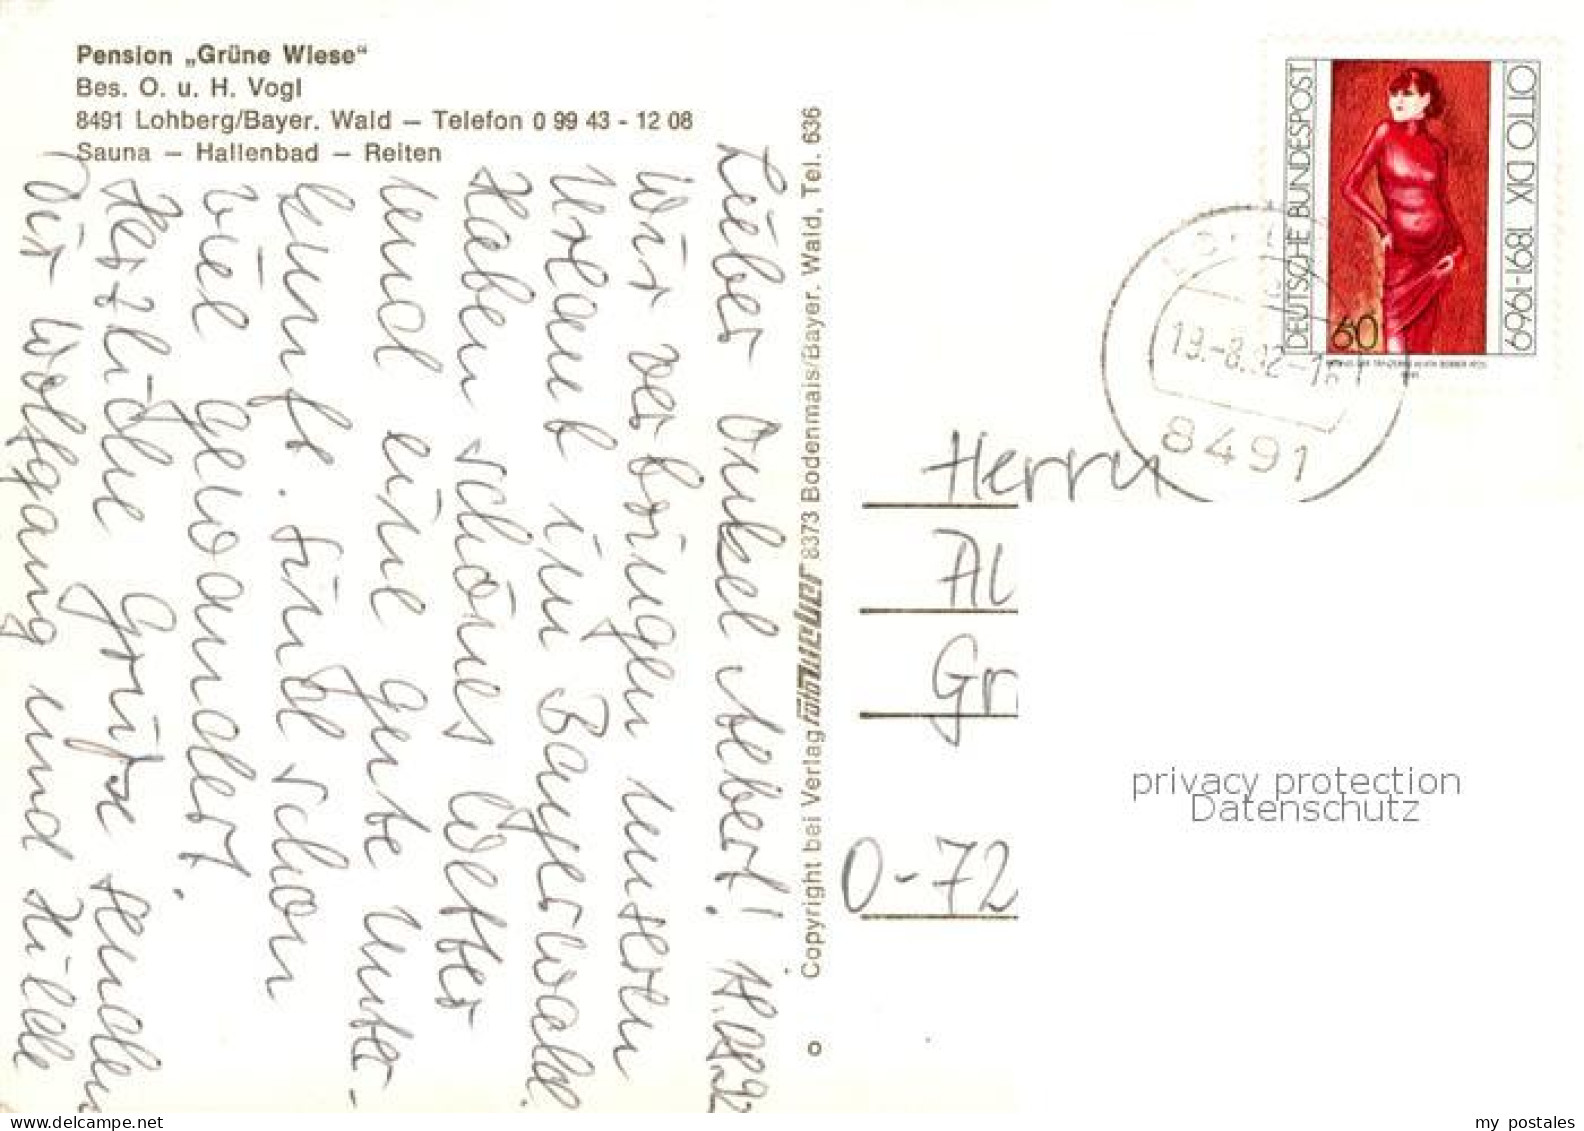 Pension „Grüne Wiese“
Bes. O. u. H. Vogl
8491 Lohberg/Bayer. Wald — Telefon 0 99 43 - 12 08
Sauna — Hallenbad — Reiten
Lieber Onkel Albert!
Wir verbringen unseren
Urlaub im Bayerwald.
Haben schönes Wetter
und eine gute Unter-
kunft. Sind schon
viel gewandert.
Herzliche Grüße senden
Dir Wolfgang und Hilde
Copyright bei Verlag foto WEBER 8373 Bodenmais/Bayer. Wald, Tel. 636
DEUTSCHE BUNDESPOST
OTTO DIX 1891-1969
60
19.-8.92-16
8491
Herrn
Al
Gr
O-72
privacy protection
Datenschutz
my postales
www.delcampe.net